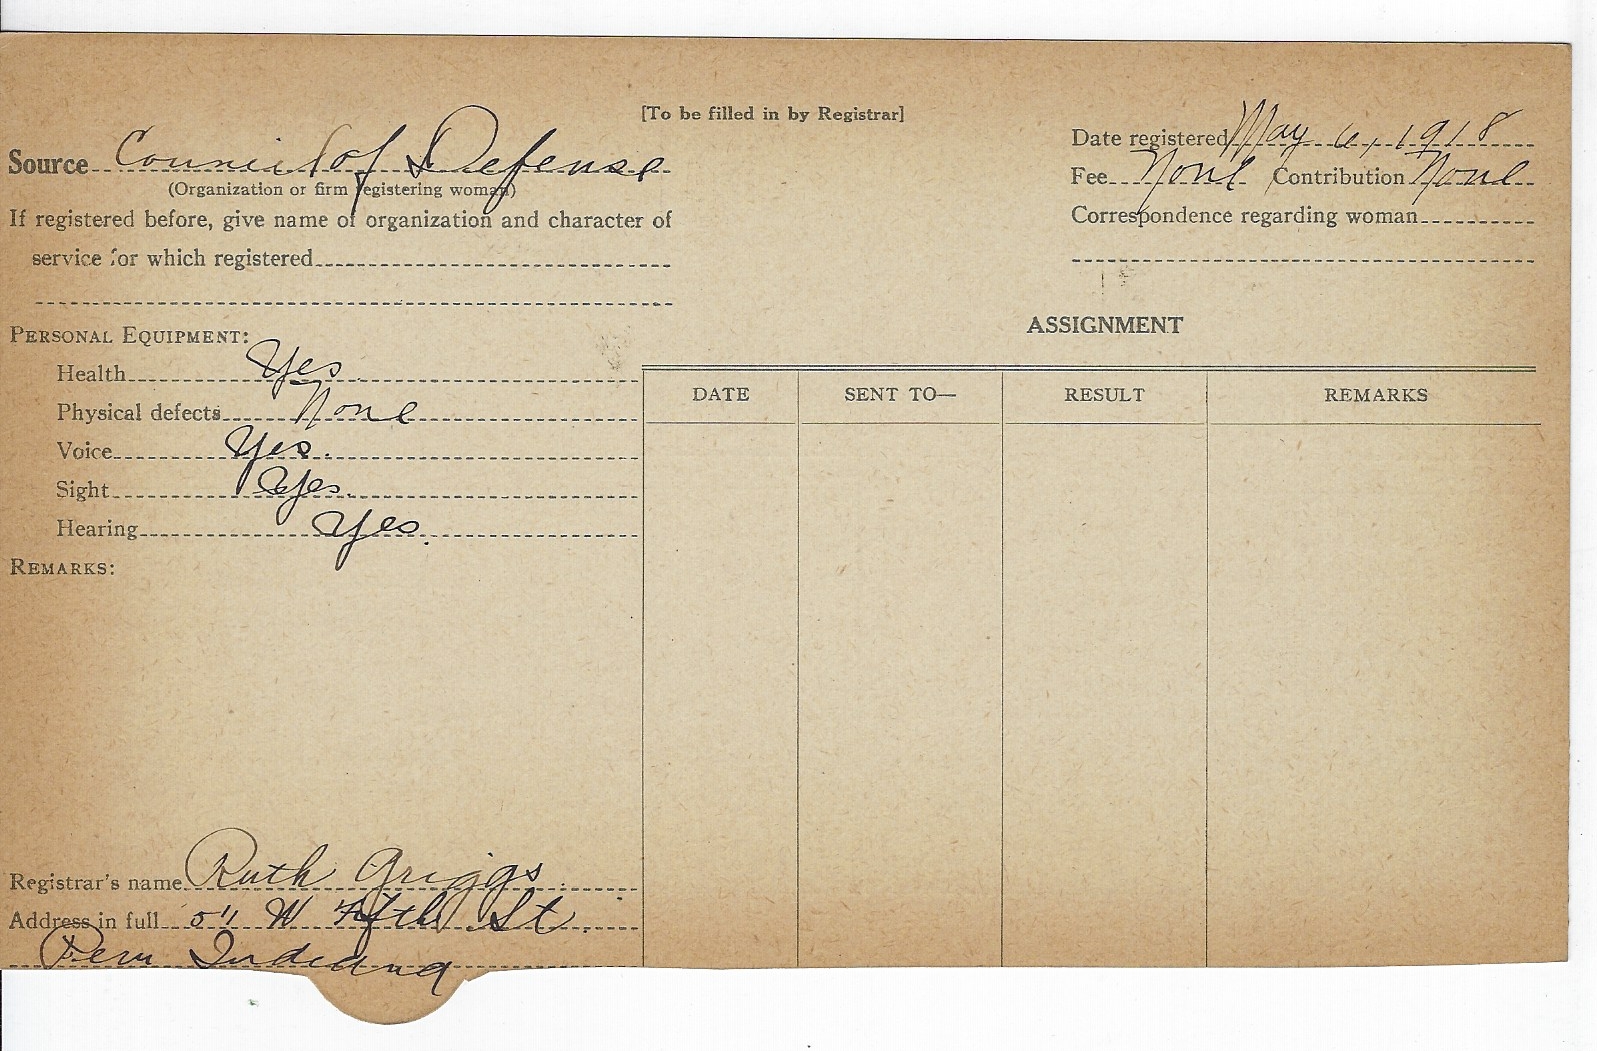 [To be filled in by Registrar]
Source Council of Defense
(Organization or firm registering woman)
If registered before, give name of organization and character of
service for which registered
Date registered May 6, 1918
Fee None Contribution None
Correspondence regarding woman
PERSONAL EQUIPMENT:
Health Yes
Physical defects None
Voice Yes.
Sight Yes.
Hearing Yes.
REMARKS:
ASSIGNMENT
DATE SENT TO— RESULT REMARKS
Registrar's name Ruth Griggs
Address in full W Fifth St.
Peru Indiana